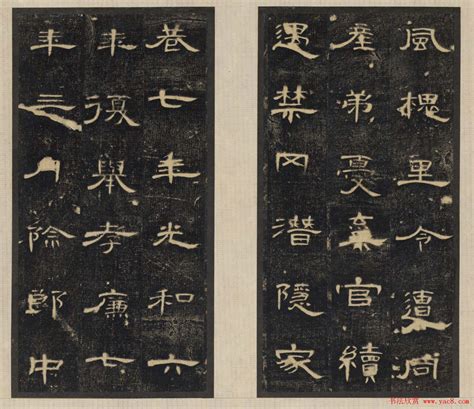 風槐里令遭同
産弟憂棄官續
遇禁网潛隱家
巷七年光和六
年復舉孝廉七
年三月除郎中
书法欣赏 www.yac8.com